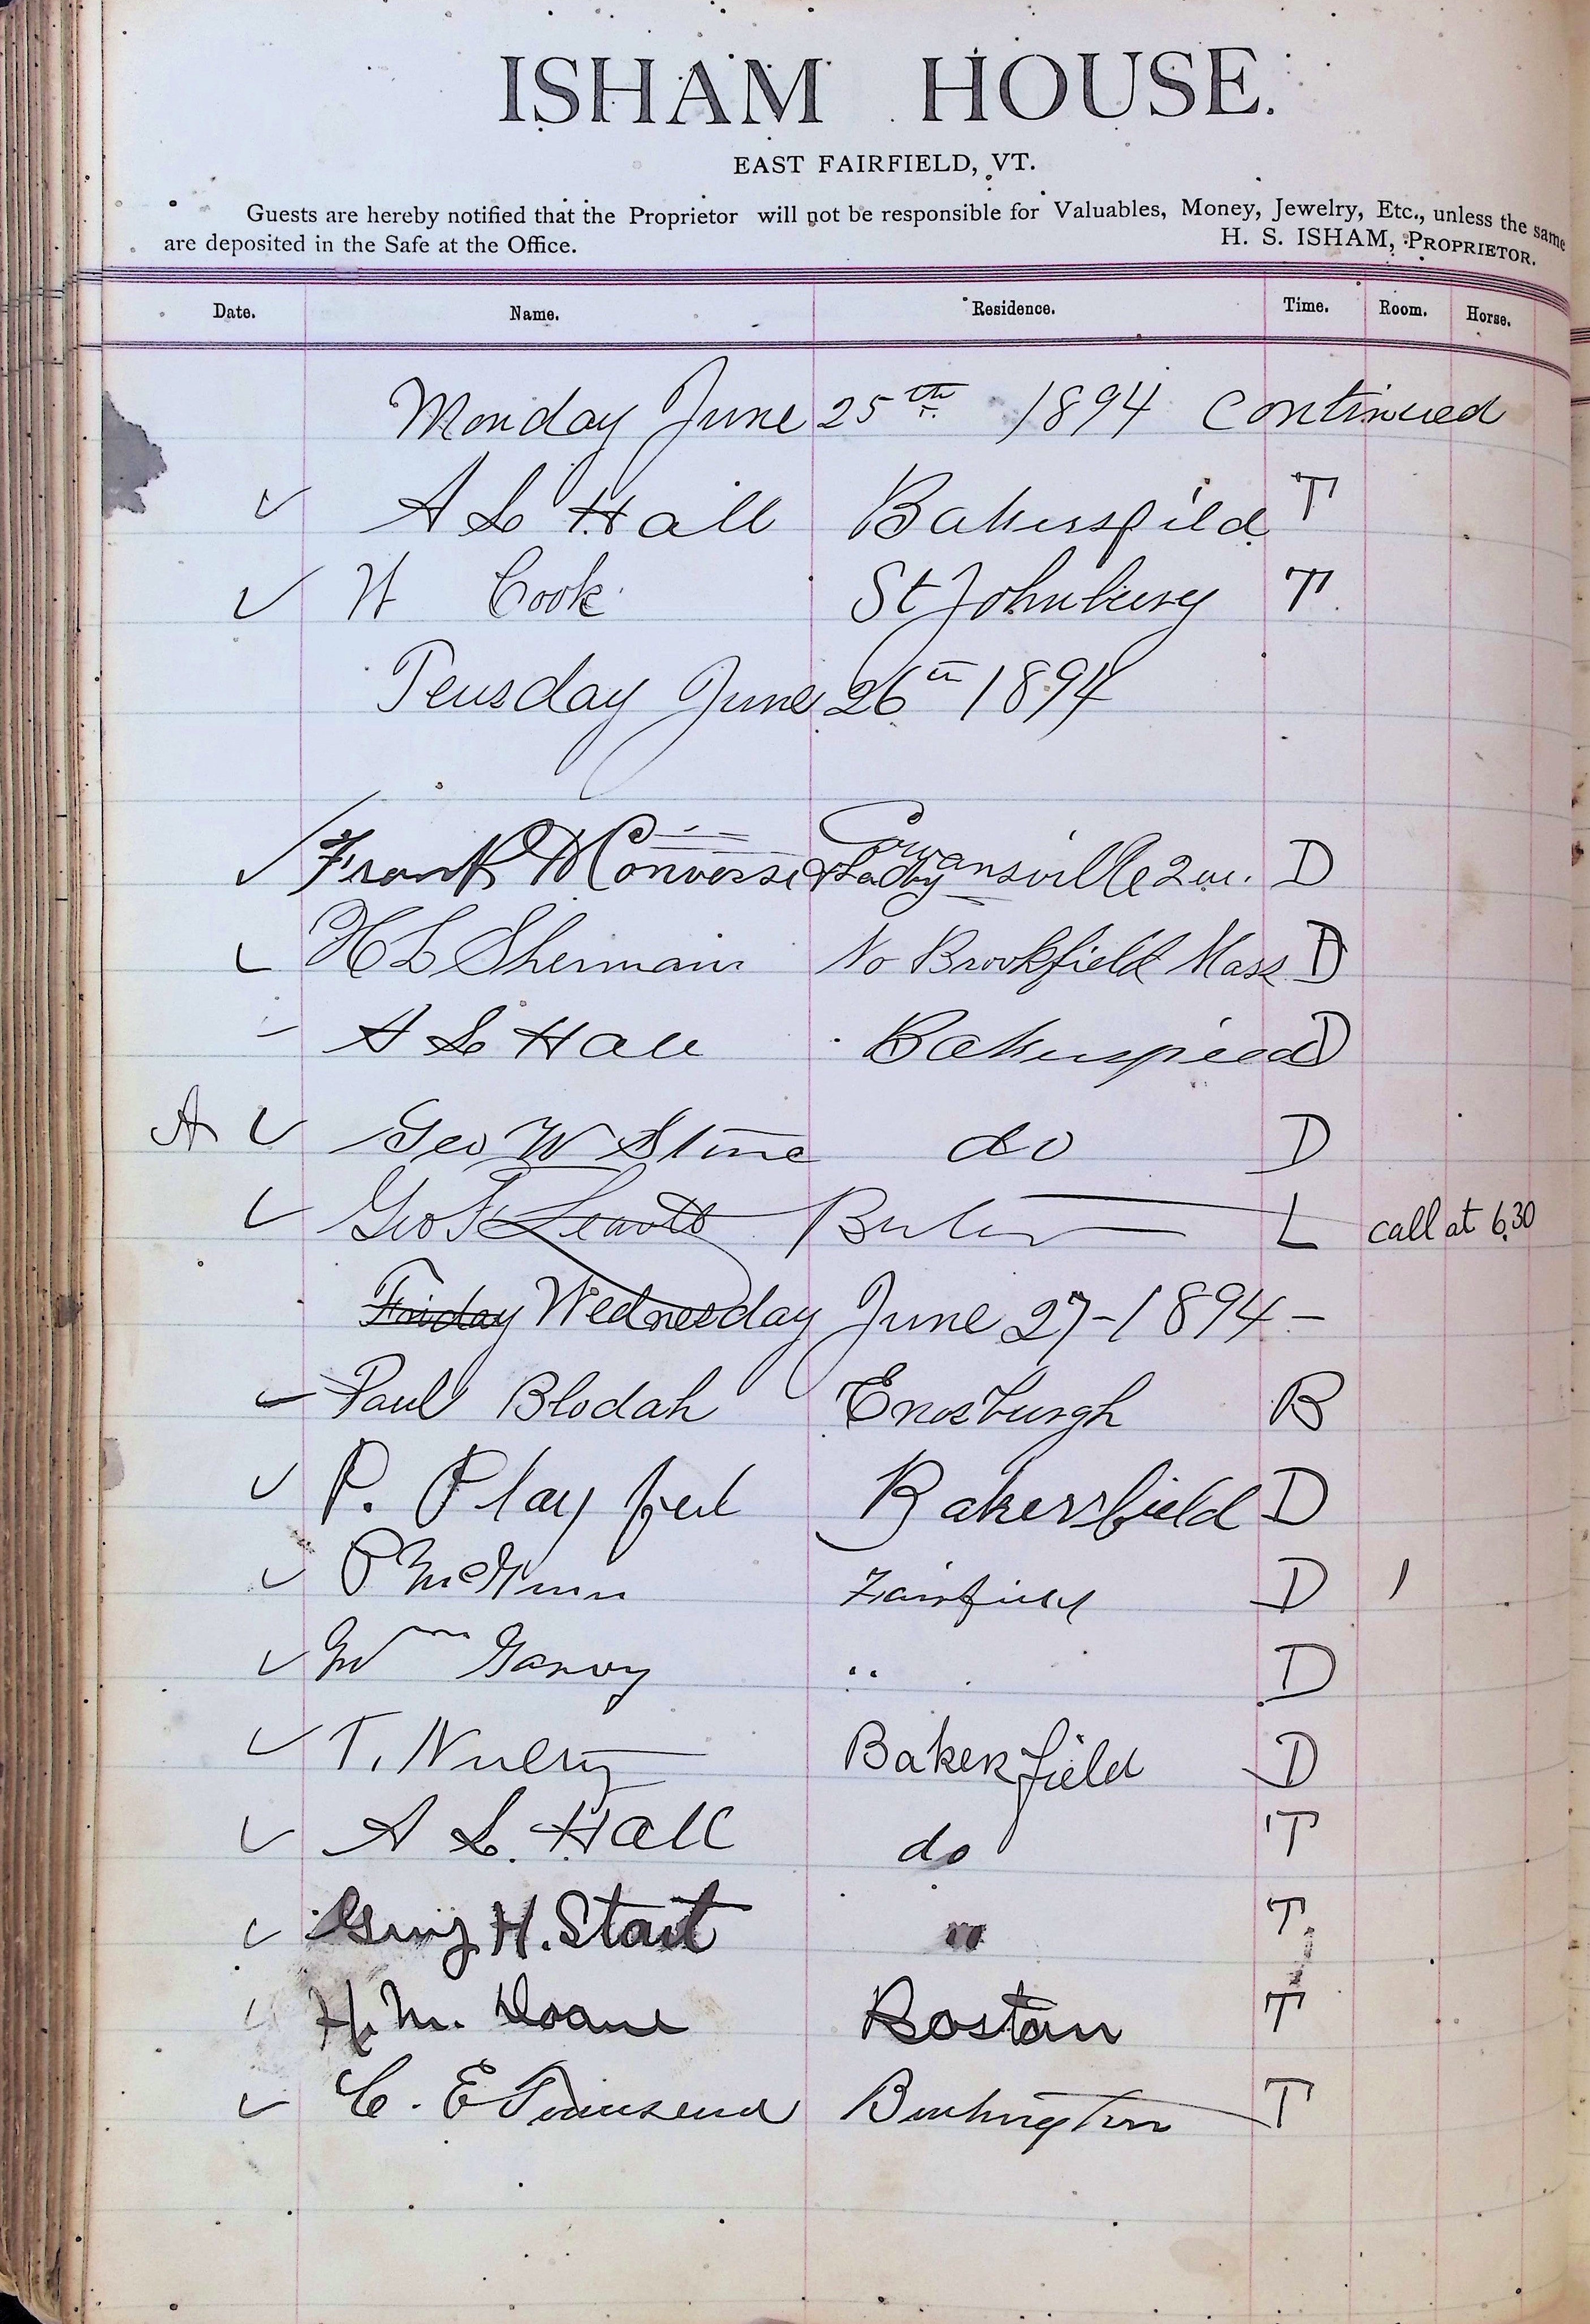 ISHAM HOUSE.
EAST FAIRFIELD, VT.
Guests are hereby notified that the Proprietor will not be responsible for Valuables, Money, Jewelry, Etc., unless the same
are deposited in the Safe at the Office. H. S. ISHAM, PROPRIETOR.
Date. Name. Residence. Time. Room. Horse.
Monday June 25th 1894 Continued
A L Hall Bakersfild T
H Cook St Johnbury T
Teusday June 26th 1894
Frank M Converse & Lady Cowansville D
H L Sherman No Brookfield Mass D
A L Hall D
A Geo W Stone do D
Geo F Leavitt L call at 6.30
Friday Wednesday June 27-1894-
Paul Blodah Enosburgh B
P. Play Bakersfield D
P McGinn Fairfield D 1
Wm Garvy " D
T. Bakerfield D
A L. Hall do T
H. Start " T
H. M. Doane Boston T
C. E Townsend Burlington T